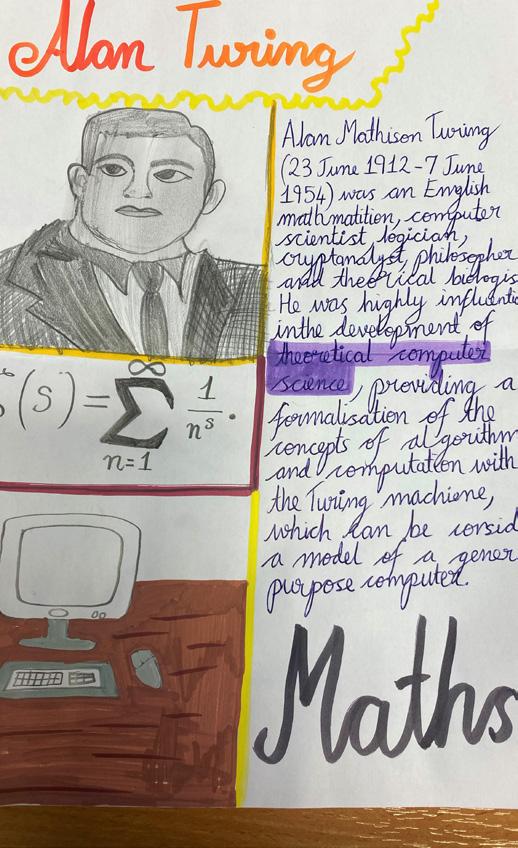 Alan Turing
Alan Mathison Turing
(23 June 1912-7 June
1954) was an English
mathmatition, computer
scientist logician,
cryptanalyst, philosopher
and theorical biologis
He was highly influentia
inthe development of
theoretical computer
science, providing a
formalisation of the
concepts of algorithm
and computation with
the Turing machiene,
which can be consid
a model of a gener
purpose computer.
(S) = ∞ Σ n=1 1/n^s .
Maths